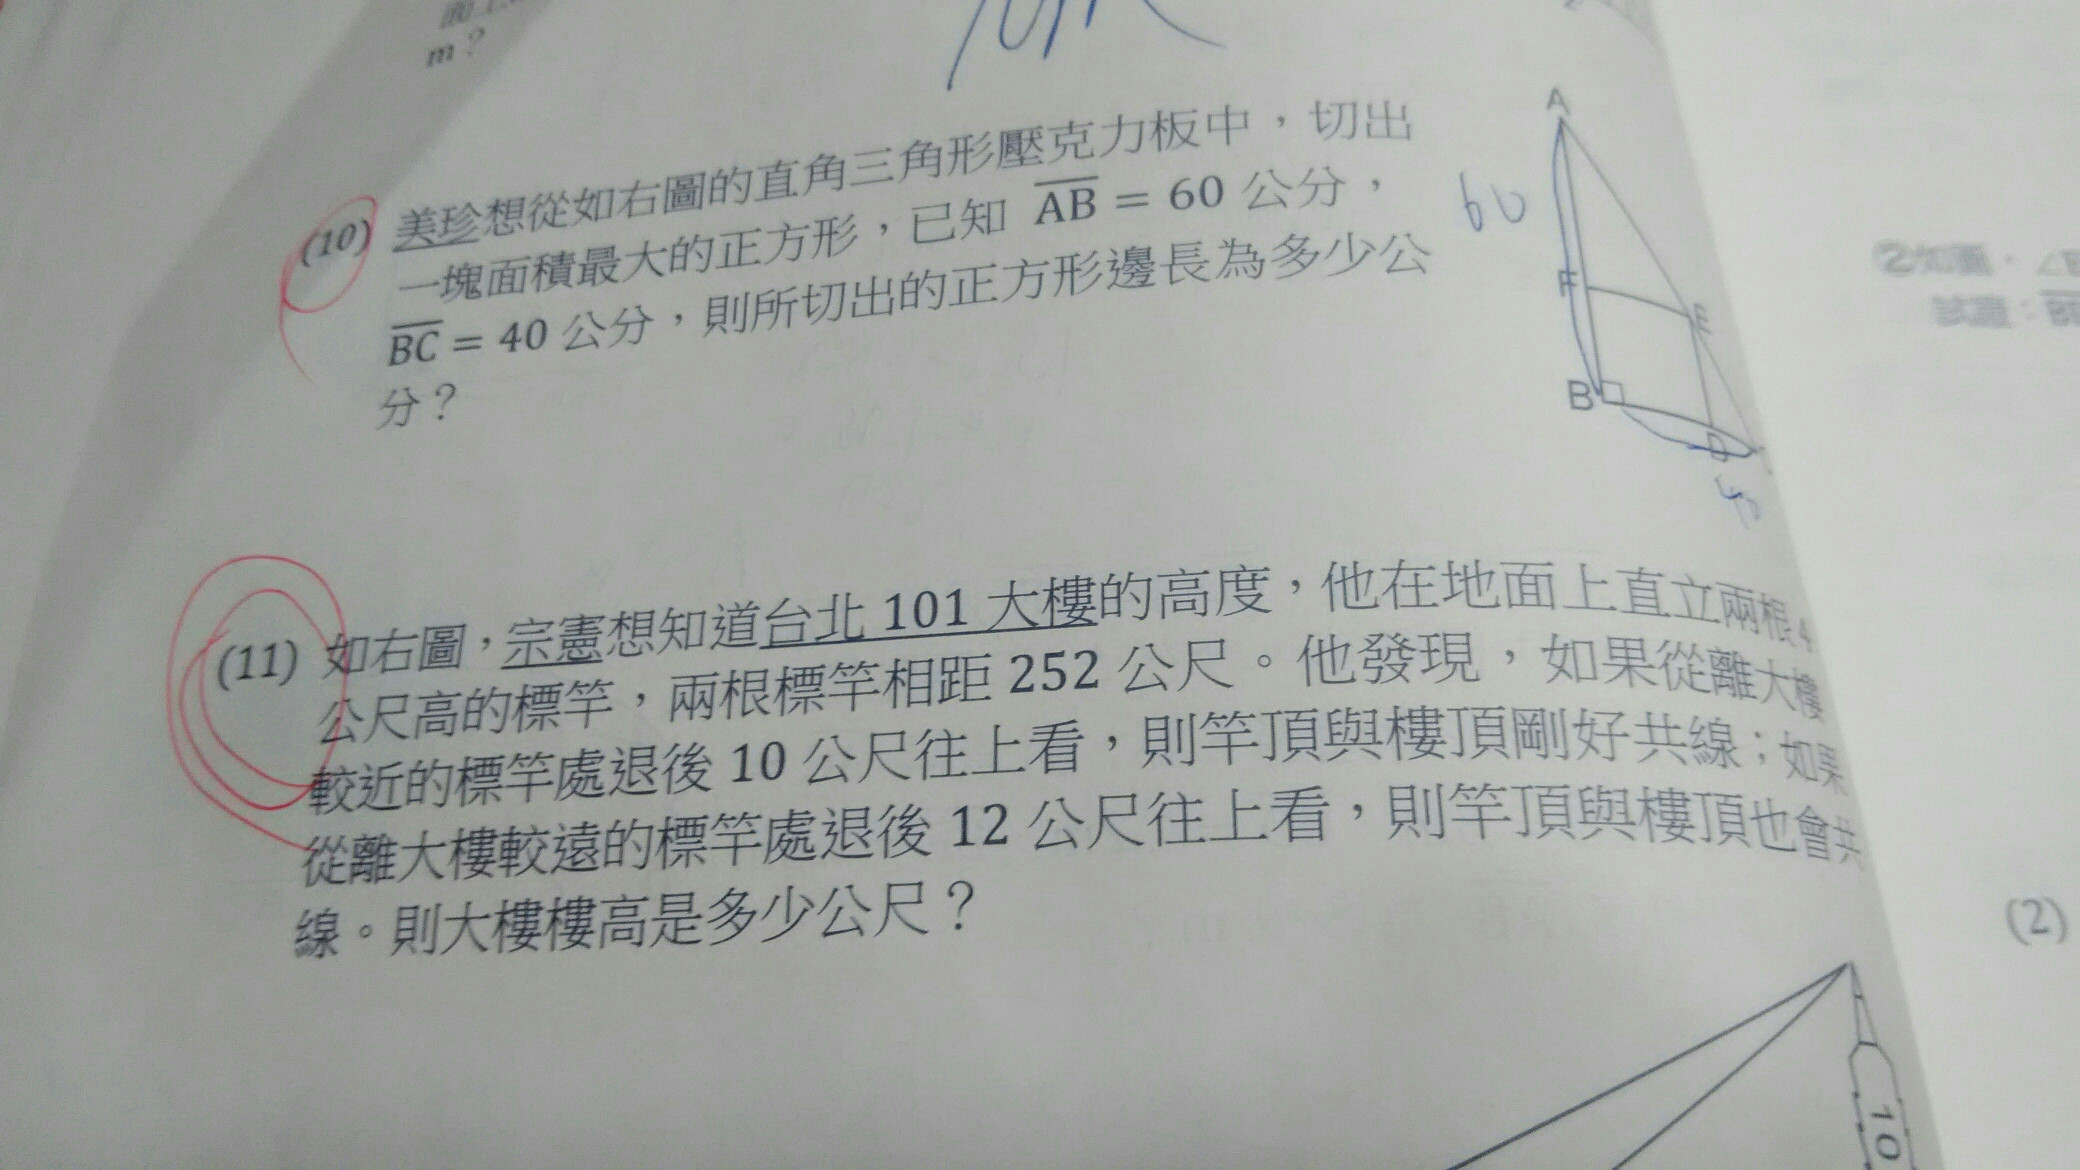 m？
(10) 美珍想從如右圖的直角三角形壓克力板中，切出
一塊面積最大的正方形，已知 AB = 60 公分，
BC = 40 公分，則所切出的正方形邊長為多少公
分？
A
60
F
E
B
D
40
(11) 如右圖，宗憲想知道台北 101 大樓的高度，他在地面上直立兩根 4
公尺高的標竿，兩根標竿相距 252 公尺。他發現，如果從離大樓
較近的標竿處退後 10 公尺往上看，則竿頂與樓頂剛好共線；如果
從離大樓較遠的標竿處退後 12 公尺往上看，則竿頂與樓頂也會共
線。則大樓樓高是多少公尺？
10
②如圖，∠B
(2)